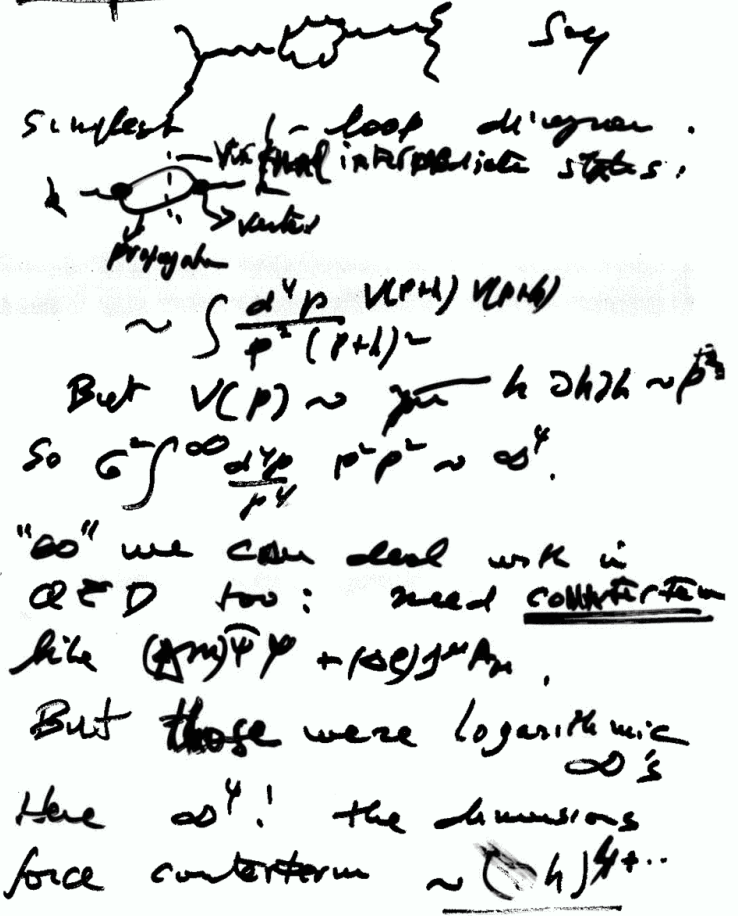 Say
simplest 1-loop diagram.
virtual intermediate states.
k k
vertex
propagator
~ ∫ d⁴p V(p+k) V(p+k) / p² (p+k)²
But V(p) ~ h ∂h∂h ~ p²
So G² ∫^∞ d⁴p/p⁴ p²p² ~ ∞⁴.
"∞" we can deal with in
QED too: need counterterm
like (Δm)ψ̄ψ + (Δe)J^μ A_μ.
But those were logarithmic
∞'s
Here ∞⁴! the dimensions
force counterterm ~ (∂h)⁴+..